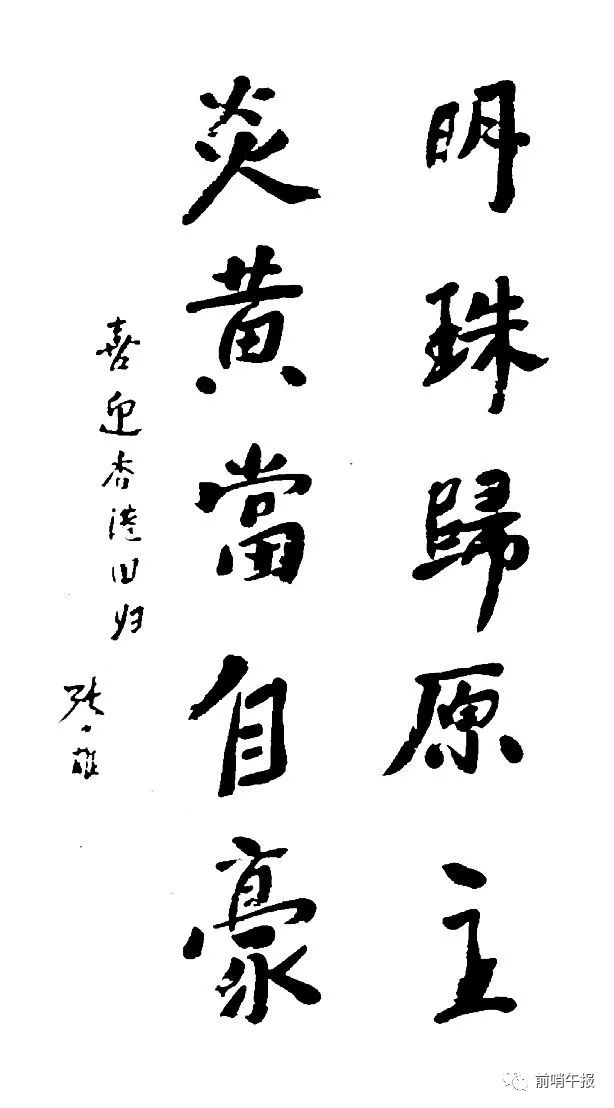 明珠歸原主
炎黄當自豪
喜迎香港回归
张雄
前哨午报